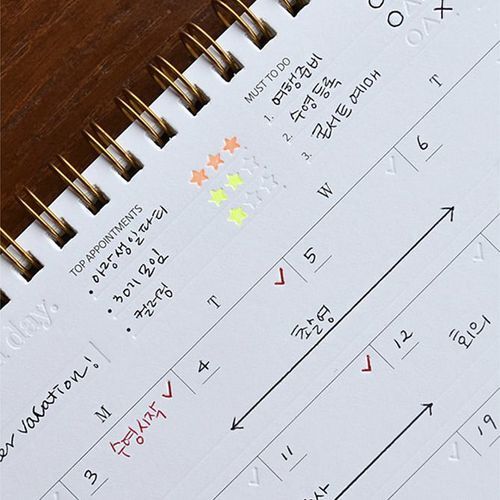 day.
vacation!
TOP APPOINTMENTS
• 아랑생일파티
• 30기 모임
• 컬러링
MUST TO DO
1. 여행준비
2. 수영 등록
3. 콘서트 예매
M
T
W
T
3
수영시작
4
5
6
촬영
11
12
회의
19